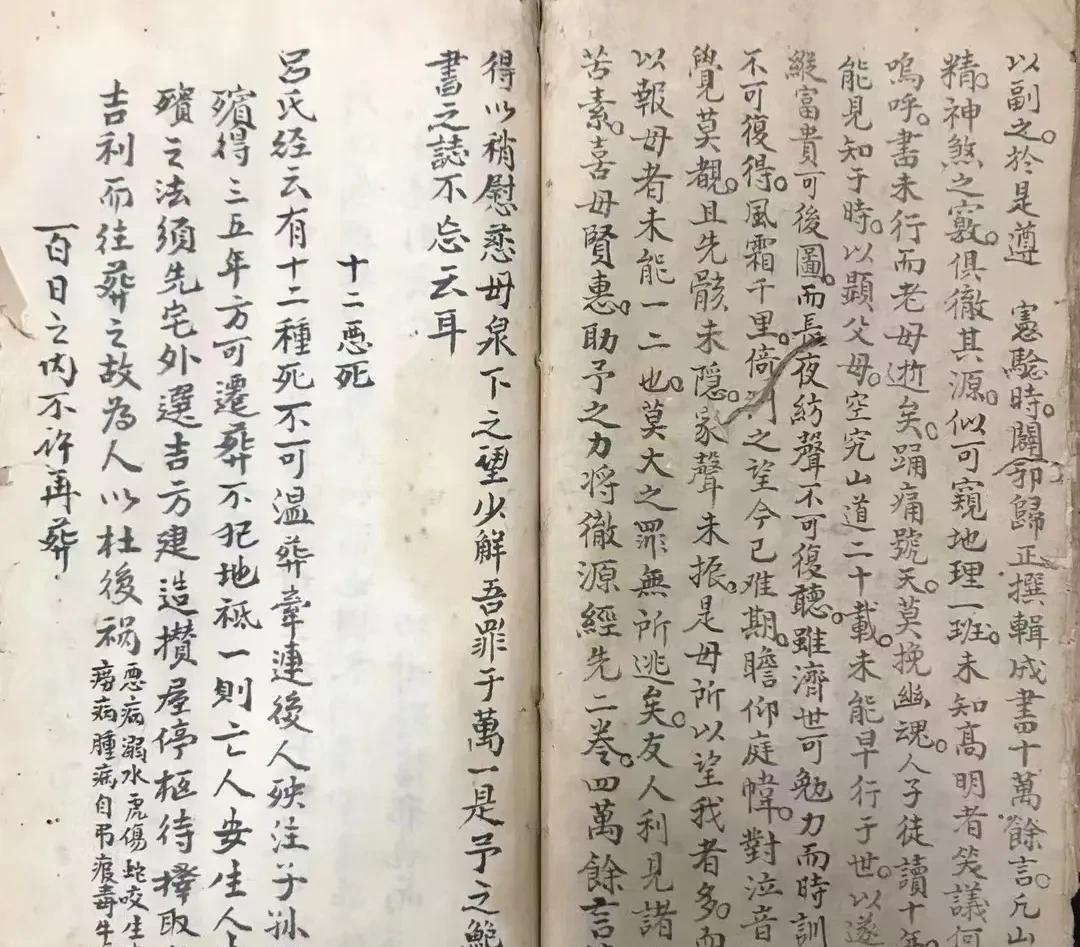 以副之於是遵 憲驗時闢邪歸正撰輯成書十萬餘言凡山
精神煞之竅俱徹其源似可窺地理一班未知高明者笑議何
嗚呼書未行而老母逝矣踊痛號天莫挽幽魂人子徒讀十年
能見知于時以顯父母空究山道二十載未能早行于世以遂
縱富貴可後圖而長夜紡聲不可復聽雖濟世可勉力而時訓
不可復得風霜千里倚之望今已难期瞻仰庭幃對泣音
覺莫覩且先骸未隐家聲未振是母所以望我者多而
以報母者未能一二也莫大之罪無所逃矣友人利見諸
苦素喜母賢惠助予之力将徹源經先二卷四萬餘言
得以稍慰慈母泉下之望少解吾罪于萬一是予之鮑
書之誌不忘云耳
十二惡死
呂氏经云有十二種死不可温葬牽連後人殃注子孙
殯得三五年方可遷葬不犯地祗一則亡人安生人
殯之法須先宅外選吉方建造攢屋停柩待擇取
吉利而往葬之故為人以杜後祸
惡病溺水虎傷蛇咬生
癆病腫病自弔瘟毒牛
一百日之内不许再葬